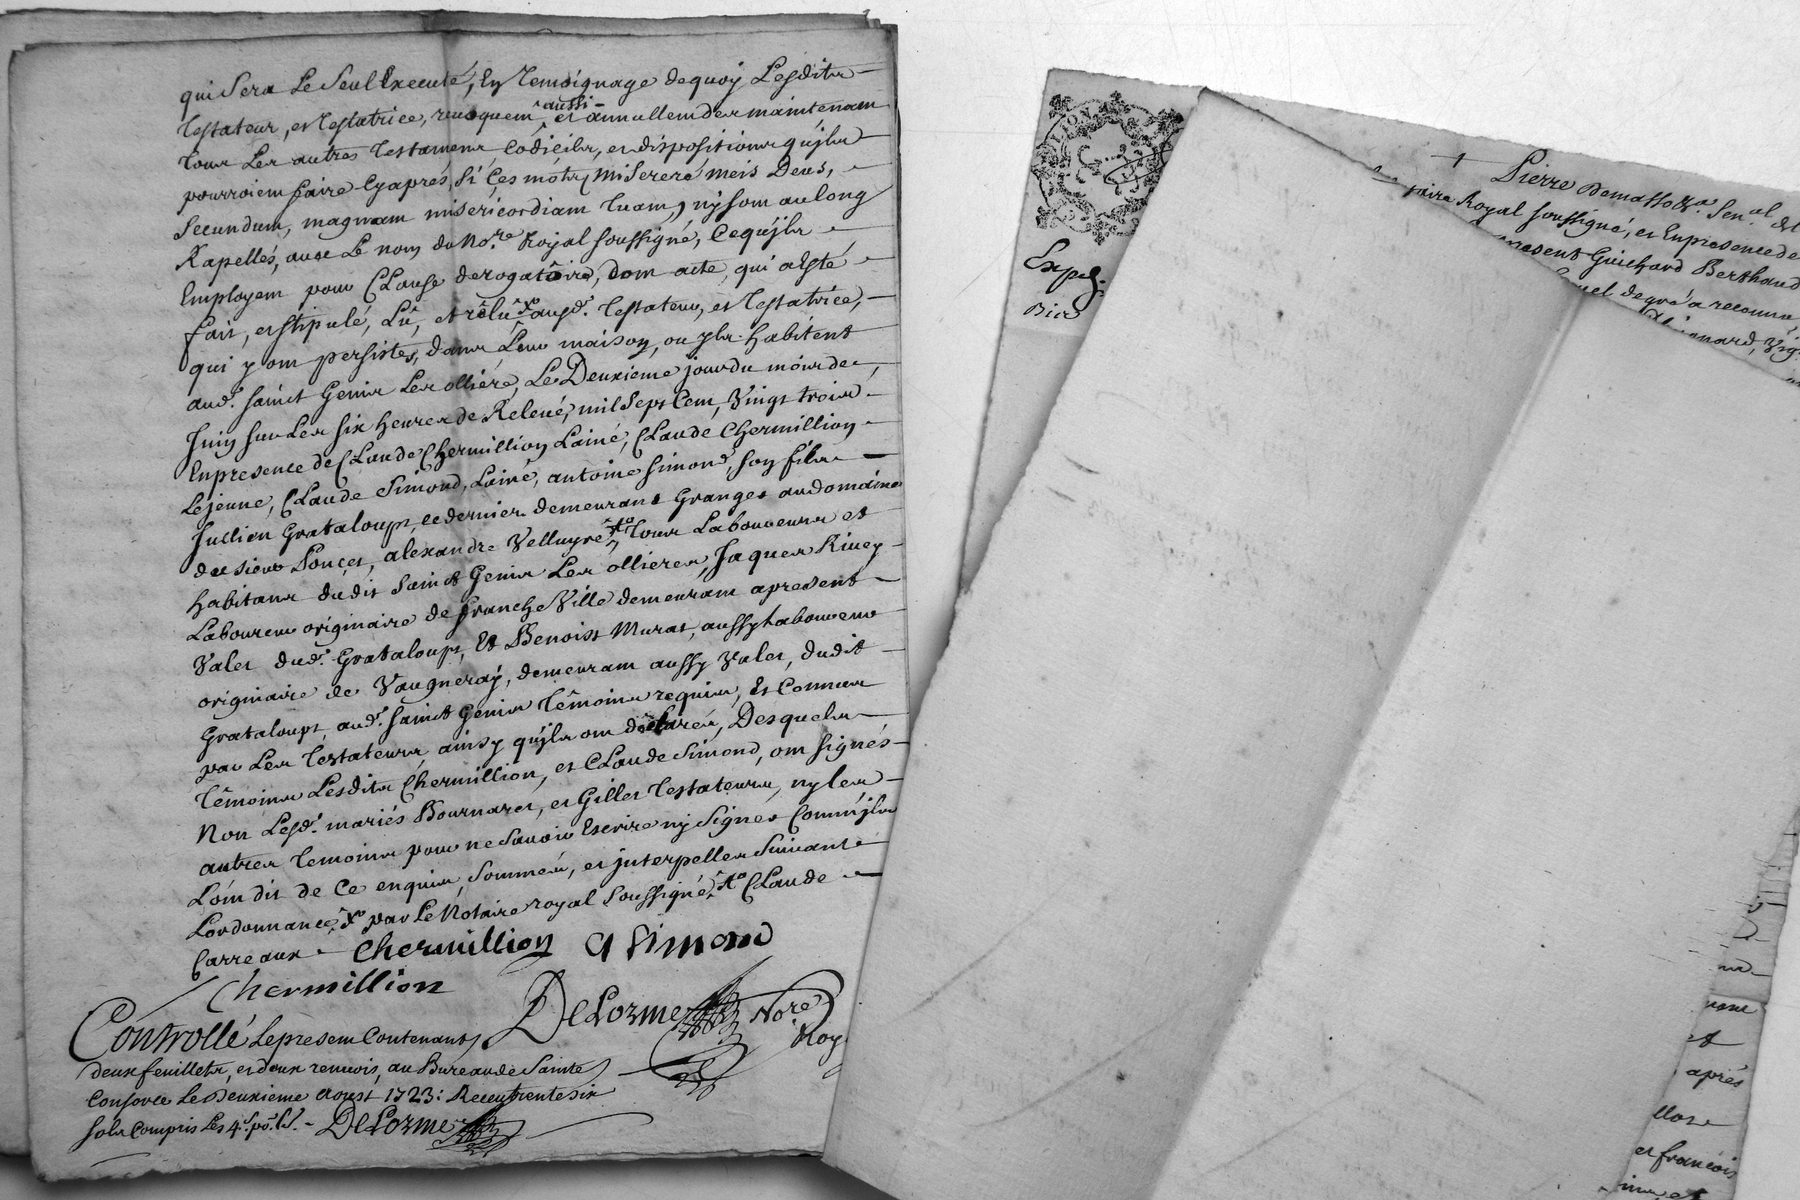 qui sera le seul Executé, En Temoignage de quoy Lesdits
Testateur, et Testatrice, reuoquent aussi et annullent des maintenant
tous Les autres Testamens Codiciles, et dispositions qu'ils
pourroient faire Cyaprés, si Ces mots, Misereré meis Deus,
Secundum, magnam misericordiam Tuam, ny sont au long
Rapellés, auec Le nom du No.re Royal soussigné, Ce qu'ils
Employent pour Clause derogatoire, dont acte, qui a esté
fait, et stipulé, Lû, et relû ausd.t Testateur, et Testatrice,
qui y ont persistes, dans Leur maison, ou yls habitent
aud.t sainct Genis Les ollieré, Le Deuxieme jour du mois de
Juin sur Les six heures de Releué, mil Sept Cent, Vingt trois
En presence de Claude Chermillion Lainé, Claude Chermillion
Lejeune, Claude Simond, Lainé, antoine simond, son fils
Jullien Grataloup, ce dernier demeurant Granger au domaine
du sieur Poncet, alexandre Velluyre Tous Laboureurs et
habitans dudit sainct Genis Les ollieres, Jaques Riuey
Laboureur originaire de FrancheVille demeurant apresent
Valet dud.t Grataloup, Et Benoist Murat, aussy Laboureur
originaire de Vaugneray, demeurant aussy Valet, dudit
Grataloup, aud.t sainct Genis Témoins requis, Et Connus
par Les Testateurs, ainsy qu'yls ont declarés, Desquels
Témoins Lesdits Chermillion, et Claude Simond, ont signés
Non Lesd.t mariés Bournaret, et Gillet Testateurs, ny les
autres Temoins pour ne Sauoir Escrire ny Signer Comm'yls
L'ont dit de Ce enquis, Sommés, et jnterpelles Suiuant
Lordonnance par Le Notaire royal Soussigné, Claude
Carreaux
Chermillion C Simond
Chermillion
DeLorme No.re
Roy
Controllé Le present Contenant
deux feuillets, et deux renuois, au Bureau de Sainte
Consorce Le Deuxieme aoust 1723: Receu trente six
sols Compris Les 4.s po.r L. DeLorme
Exped.
Pierre Demassoz Sen.al
Royal soussigné, et En presence de
present Guichard Berthaud
degré a reconnu
aprés
et francois